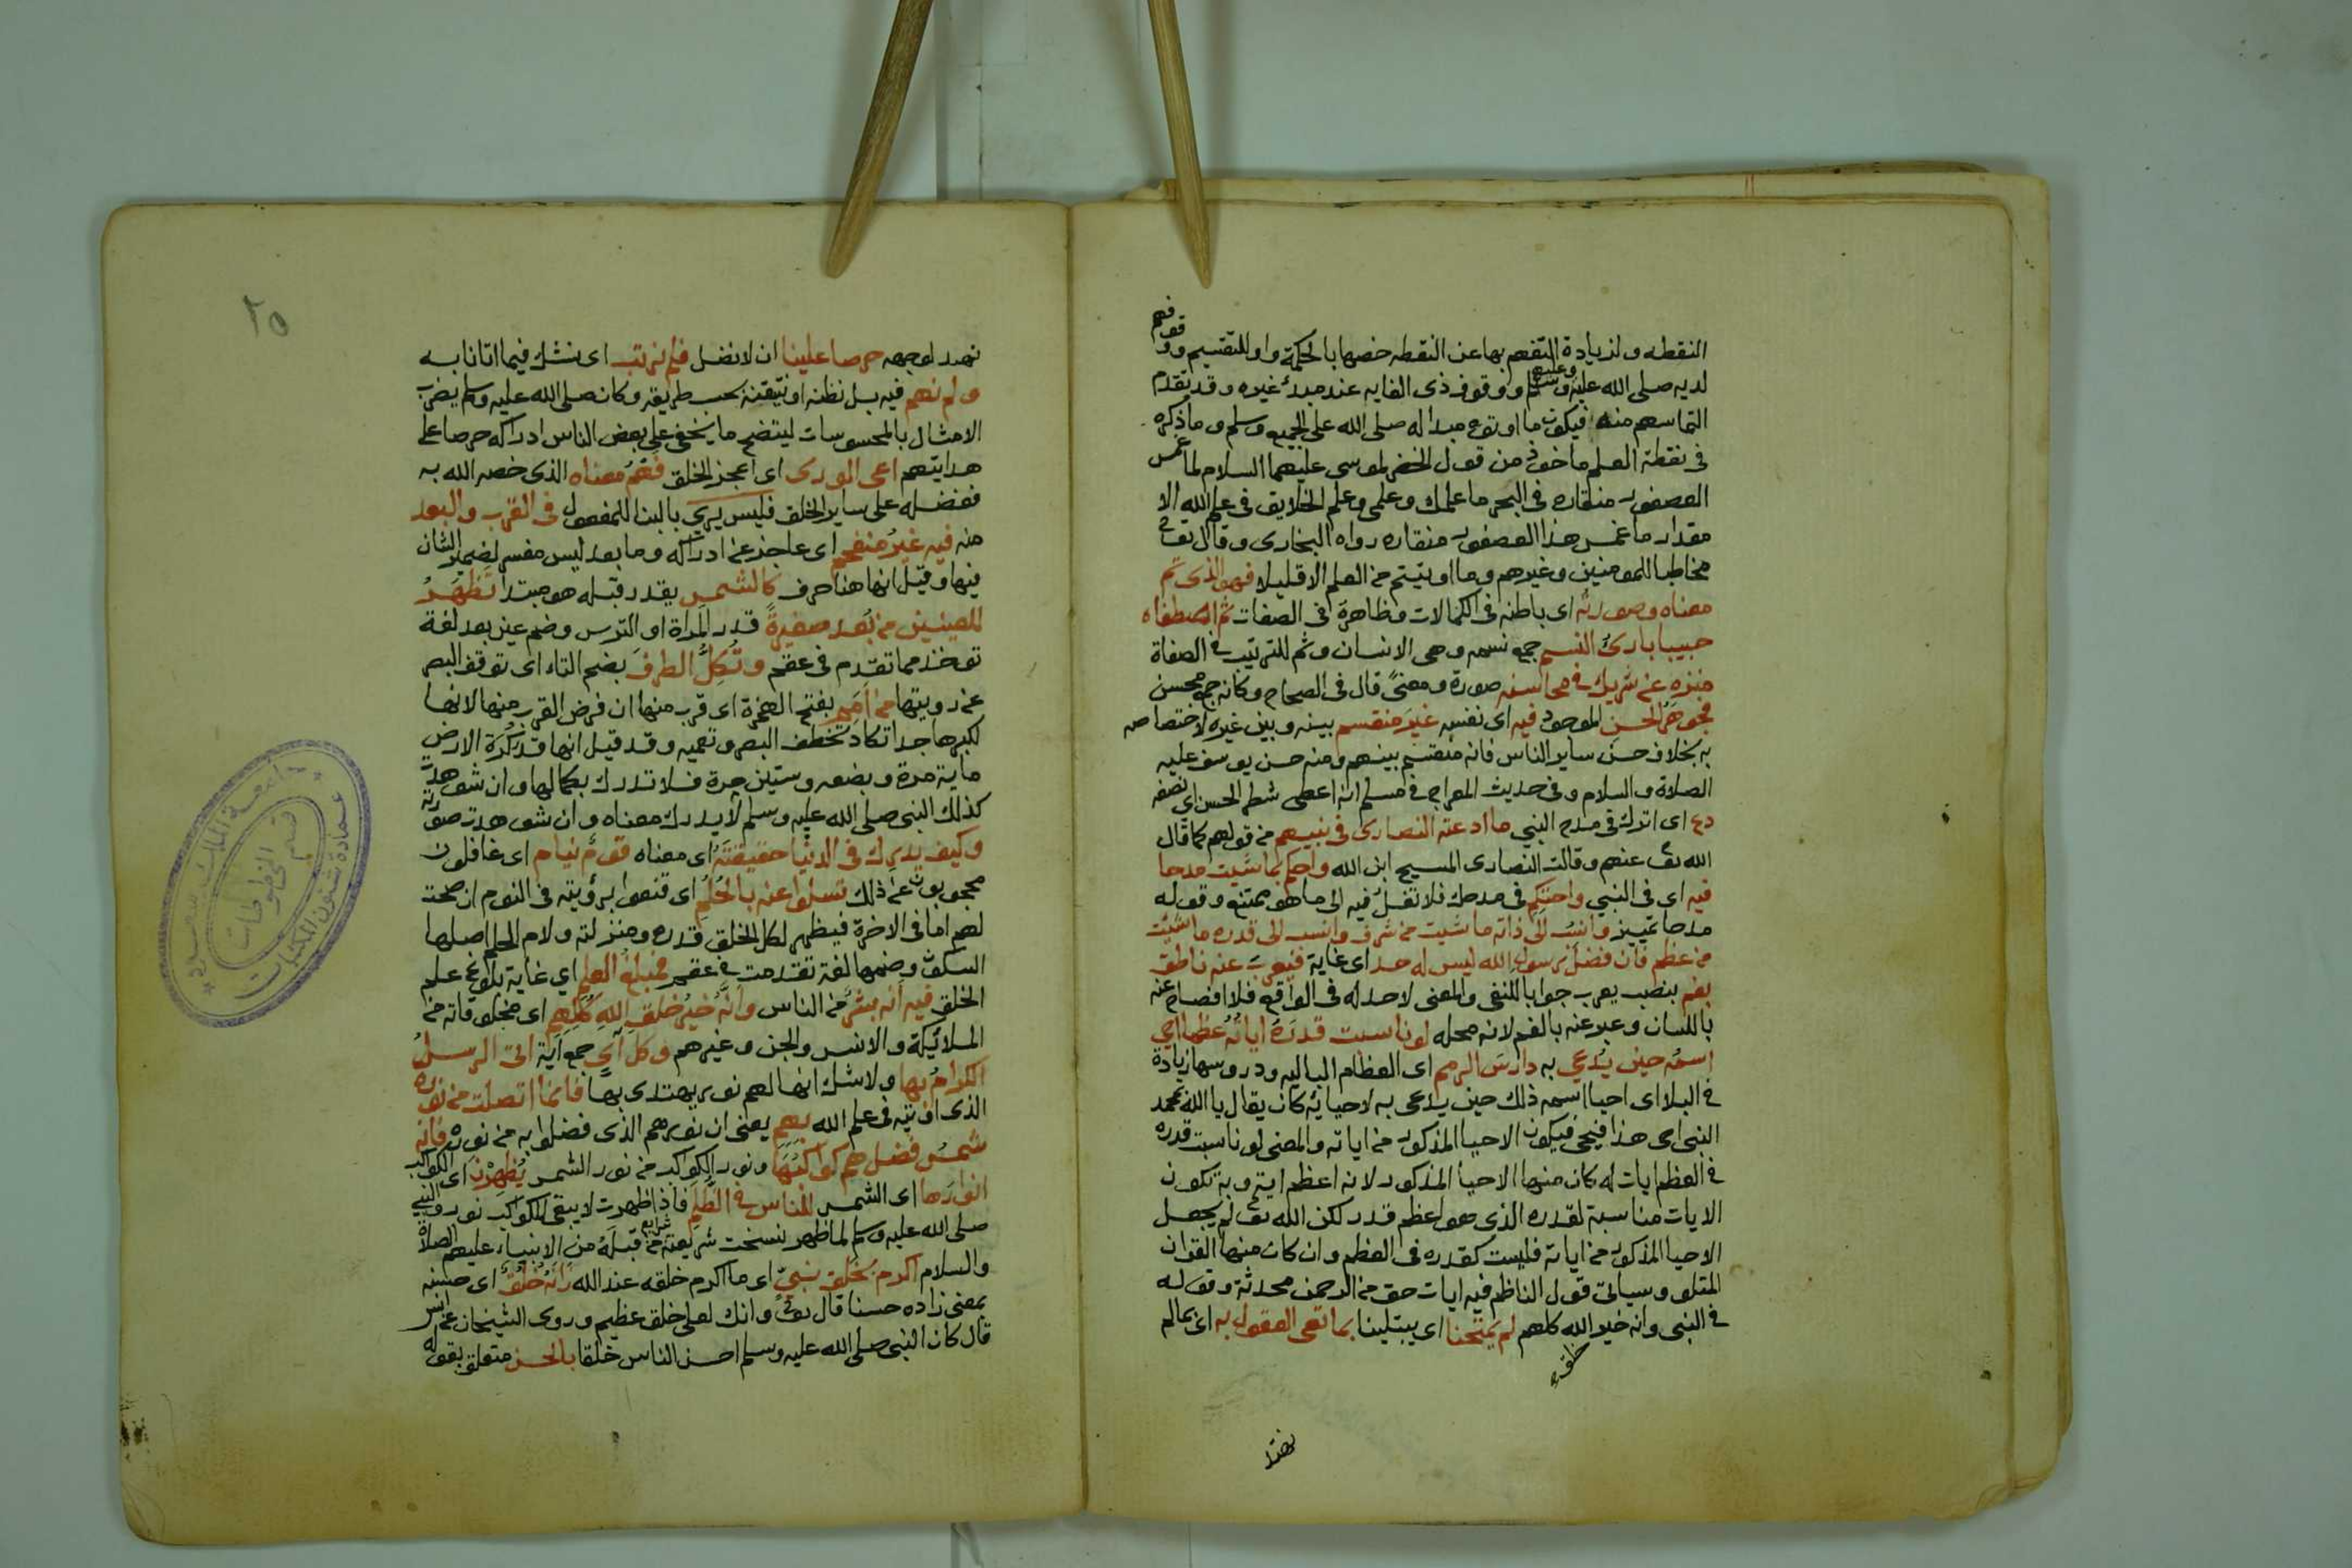 النقطه ولزيادة التفهم بها عن النقطه خصها بالحكمة واو للتقسيم ووقوفهم
لديه صلى الله عليه وعليهم وسلم ووقوف ذى الغايه عند مبدء غيره وقد تقدم
التماسهم منه فيكون ما اوتوه مبدا له صلى الله على الجميع وسلم وما ذكره
فى نقطة العلم ماخوذ من قول الخضر لموسى عليهما السلام لما غمس
العصفور منقاره فى البحر ما علمك وعلمى وعلم الخلايق فى علم الله الا
مقدار ما غمس هذا العصفور منقاره رواه البخارى وقال تعالى
مخاطبا للمومنين وغيرهم وما اوتيتم من العلم الا قليلا فهو الذى تم
معناه وصورته اى باطنه فى الكمالات وظاهره فى الصفات ثم اصطفاه
حبيبا بارئ النسم جمع نسمه وهى الانسان وثم للترتيب فى الصفاة
منزه عن شريك فى محاسنه صورة ومعنى قال فى الصحاح وكانه جمع محسن
فجوهر الحسن الموجود فيه اى نفسه غير منقسم بينه وبين غيره لاختصاصه
به بخلاف حسن ساير الناس فانه منقسم بينهم ومنه حسن يوسف عليه
الصلاة والسلام وفى حديث المعراج فى مسلم انه اعطى شطر الحسن اى نصفه
دع اى اترك فى مدح النبي ما ادعته النصارى فى نبيهم من قولهم كما قال
الله تع عنهم وقالت النصارى المسيح ابن الله واحكم بما شيت مدحا
فيه اى فى النبي واحتكم فى مدحك فلا تغل فيه الى ما هو ممتنع وقوله
مدحا تمييز وانسب الى ذاته ما شيت من شرف وانسب الى قدره ما شئت
من عظم فان فضل رسول الله ليس له حد اى غاية فيعرب عنه ناطق
بفم بنصب يعرب جوابا للنفى والمعنى لا حد له فى الواقع فلا افصاح عنه
باللسان وعبر عنه بالفم لانه محله لو ناسبت قدره اياته عظما احيى
اسمه حين يدعى به دارس الرمم اى العظام الباليه ودروسها زيادة
فى البلا اى احيا اسمه ذلك حين يدعى به لاحيائه كان يقال يا الله بمحمد
النبى احى هذا فيحيى فيكون الاحيا المذكور من اياته والمعنى لو ناسبت قدره
فى العظم ايات له كان منها الاحيا المذكور لانه اعظم ايته وبه تكون
الايات مناسبة لقدره الذى هو اعظم قدر لكن الله تع لم يجعل
الاحيا المذكور من اياته فليست كقدره فى العظم وان كان منها القران
المتلو وسياتى قول الناظم فيه ايات حق من الرحمن محدثة وقوله
فى النبى وانه خير الله كلهم لم يمتحنا اى يبتلينا بما تعى العقول به اى بما لم
خلق
نهتد
٢٥
نهتد لوجهه حرصا علينا ان لا نضل فلم نرتب اى نشك فيما اتانا به
ولم نهم فيه بل نظنه او نتيقنه بحسب طريقه وكان صلى الله عليه وسلم يضرب
الامثال بالمحسوسات ليتضح ما يخفى على بعض الناس ادراكه حرصا على
هدايتهم اعى الورى اى اعجز الخلق فهم معناه الذى خصه الله به
ففضله على ساير الخلق فليس يرى بالبنا للمفعول فى القرب والبعد
منه فيه غير منفحم اى عاجز عن ادراكه وما بعد ليس مفسر لضمير الشان
فيها وقيل انها هنا حرف كالشمس يقدر قبله هو مبتدا تظهر
للعينين من بعد صغيرة قدر المراة او الترس وضم عين بعد لغة
توخذ مما تقدم فى عقم وتكل الطرف بضم التاء اى توقف البصر
عن رويتها من امم بفتح الهمزة اى قرب منها ان فرض القرب منها لانها
لكبرها جدا تكاد تخطف البصر وتعميه وقد قيل انها قدر كرة الارض
ماية مرة وبضعه وستين مرة فلا تدرك بكمالها وان شوهدت
كذلك النبى صلى الله عليه وسلم لا يدرك معناه وان شوهدت صورته
وكيف يدرك فى الدنيا حقيقته اى معناه قوم نيام اى غافلون
محجوبون عن ذلك تسلوا عنه بالحلم اى قنعوا برؤيته فى النوم ان صحت
لهم اما فى الاخرة فيظهر لكل الخلق قدره ومنزلته ولام الحلم اصلها
السكون وضمها لغة تقدمت فى عقم فمبلغ العلم اي غاية بلوغ علم
الخلق فيه انه بشر من الناس وانه خير خلق الله كلهم اى مخلوقاته من
الملائيكة والانس والجن وغيرهم وكل آي جمع آية اتى الرسل
الكرام بها ولا شك انها لهم نور يهتدى بها فانما اتصلت من نوره
الذى اوتيه فى علم الله بهم يعنى ان نورهم الذى فضلوا به من نوره فانه
شمس فضل هم كواكبها ونور الكواكب من نور الشمس يظهرن اى الكواكب
انوارها اى الشمس للناس فى الظلم فاذا ظهرت لا يبقى للكواكب نور والنبي
صلى الله عليه وسلم لما ظهر نسخت شريعته شرايع من قبله من الانبياء عليهم الصلاة
والسلام اكرم بخلق نبي اى ما اكرم خلقه عند الله زانه خلق اى حسنه
بمعنى زاده حسنا قال تع وانك لعلى خلق عظيم وروى الشيخان عن انس
قال كان النبى صلى الله عليه وسلم احسن الناس خلقا بالحسن متعلق بقوله
جامعة الملك سعود
عمادة شئون المكتبات
قسم المخطوطات